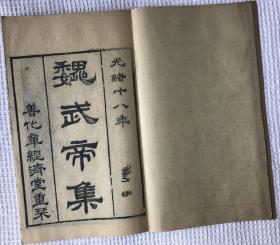 光緒十八年
魏武帝集
善化章經濟堂重栞